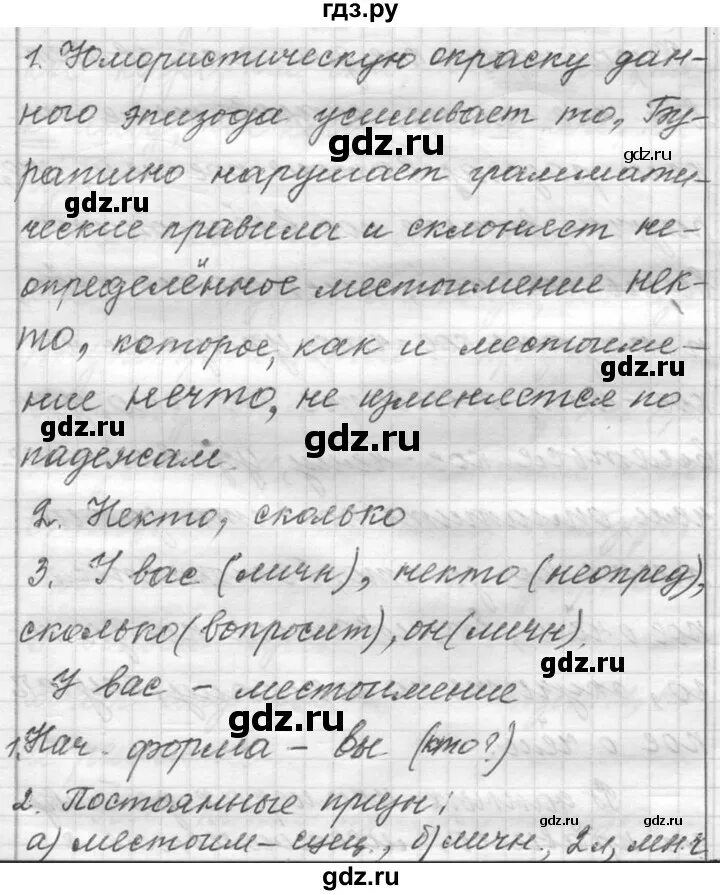 гдз.ру
1. Юмористическую окраску дан-
ного эпизода усиливает то, Бу-
gdz.ru
gdz.ru
ратино нарушает граммати-
gdz.ru
ческие правила и склоняет не-
определённое местоимение нек-
то, которое, как и местоиме-
gdz.ru
ние нечто, не изменяется по
gdz.ru
gdz.ru
падежам.
2. Некто, сколько
3. У вас (личн), некто (неопред),
сколько (вопросит), он (личн).
gdz.ru
У вас - местоимение
gdz.ru
1. Нач. форма - вы (кто?)
2. Постоянные призн:
gdz.ru
gdz.ru
а) местоим-сущ., б) личн., 2л, мн.ч.